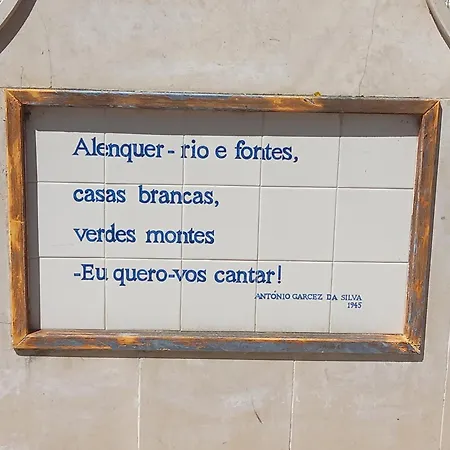 Alenquer - rio e fontes,
casas brancas,
verdes montes
-Eu quero-vos cantar!
ANTÓNIO GARCEZ DA SILVA
1945